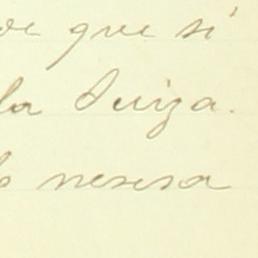 que si
la Suiza.
nesesa